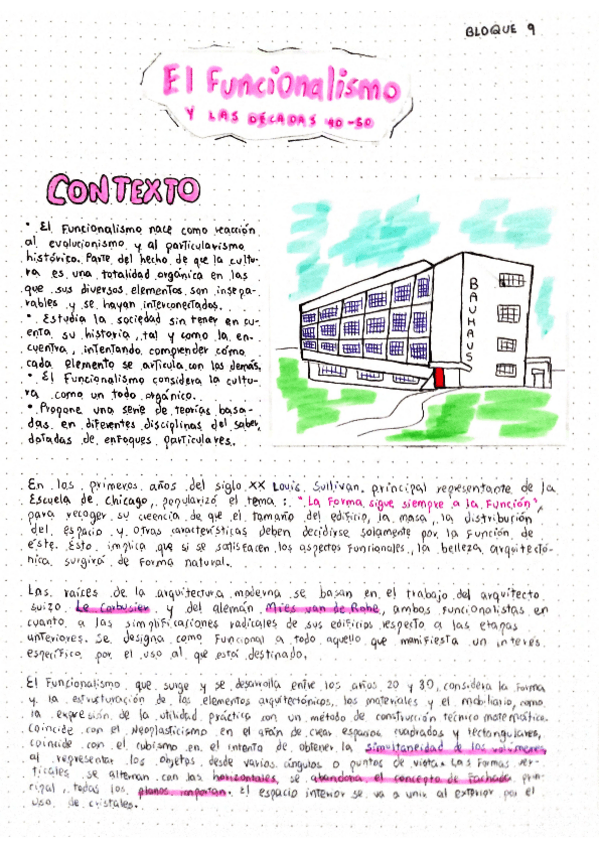 BLOQUE 9
El Funcionalismo
Y LAS DÉCADAS 40-50
CONTEXTO
• El Funcionalismo nace como reacción
al evolucionismo y al particularismo
histórico. Parte del hecho de que la cultu-
ra es una totalidad orgánica en las
que sus diversos elementos son insepa-
rables y se hayan interconectados.
• Estudia la sociedad sin tener en cu-
enta su historia, tal y como la en-
cuentra, intentando comprender cómo
cada elemento se articula con los demás.
• El Funcionalismo considera la cultu-
ra como un todo orgánico.
• Propone una serie de teorías basa-
das en diferentes disciplinas del saber,
dotadas de enfoques particulares.
BAUHAUS
En los primeros años del siglo XX Louis Sullivan principal representante de la
Escuela de Chicago, popularizó el tema: "La Forma sigue siempre a la Función",
para recoger su creencia de que el tamaño del edificio, la masa, la distribución
del espacio y otras características deben decidirse solamente por la función de
éste. Esto implica que si se satisfacen los aspectos funcionales, la belleza arquitectó-
nica surgirá de forma natural.
Las raíces de la arquitectura moderna se basan en el trabajo del arquitecto
suizo Le Corbusier y del alemán Mies van de Rohe, ambos funcionalistas en
cuanto a las simplificaciones radicales de sus edificios respecto a las etapas
anteriores. Se designa como funcional a todo aquello que manifiesta un interés
específico por el uso al que está destinado.
El Funcionalismo que surge y se desarrolla entre los años 20 y 30, considera la forma
y la estructuración de los elementos arquitectónicos, los materiales y el mobiliario, como
la expresión de la utilidad práctica con un método de construcción técnico matemático.
Coincide con el Neoplasticismo en el afán de crear espacios cuadrados y rectangulares,
coincide con el cubismo en el intento de obtener la simultaneidad de los volúmenes
al representar los objetos desde varios ángulos o puntos de vista. Las formas ver-
ticales se alternan con las horizontales, se abandona el concepto de fachada prin-
cipal, todos los planos importan. El espacio interior se va a unir al exterior por el
uso de cristales.